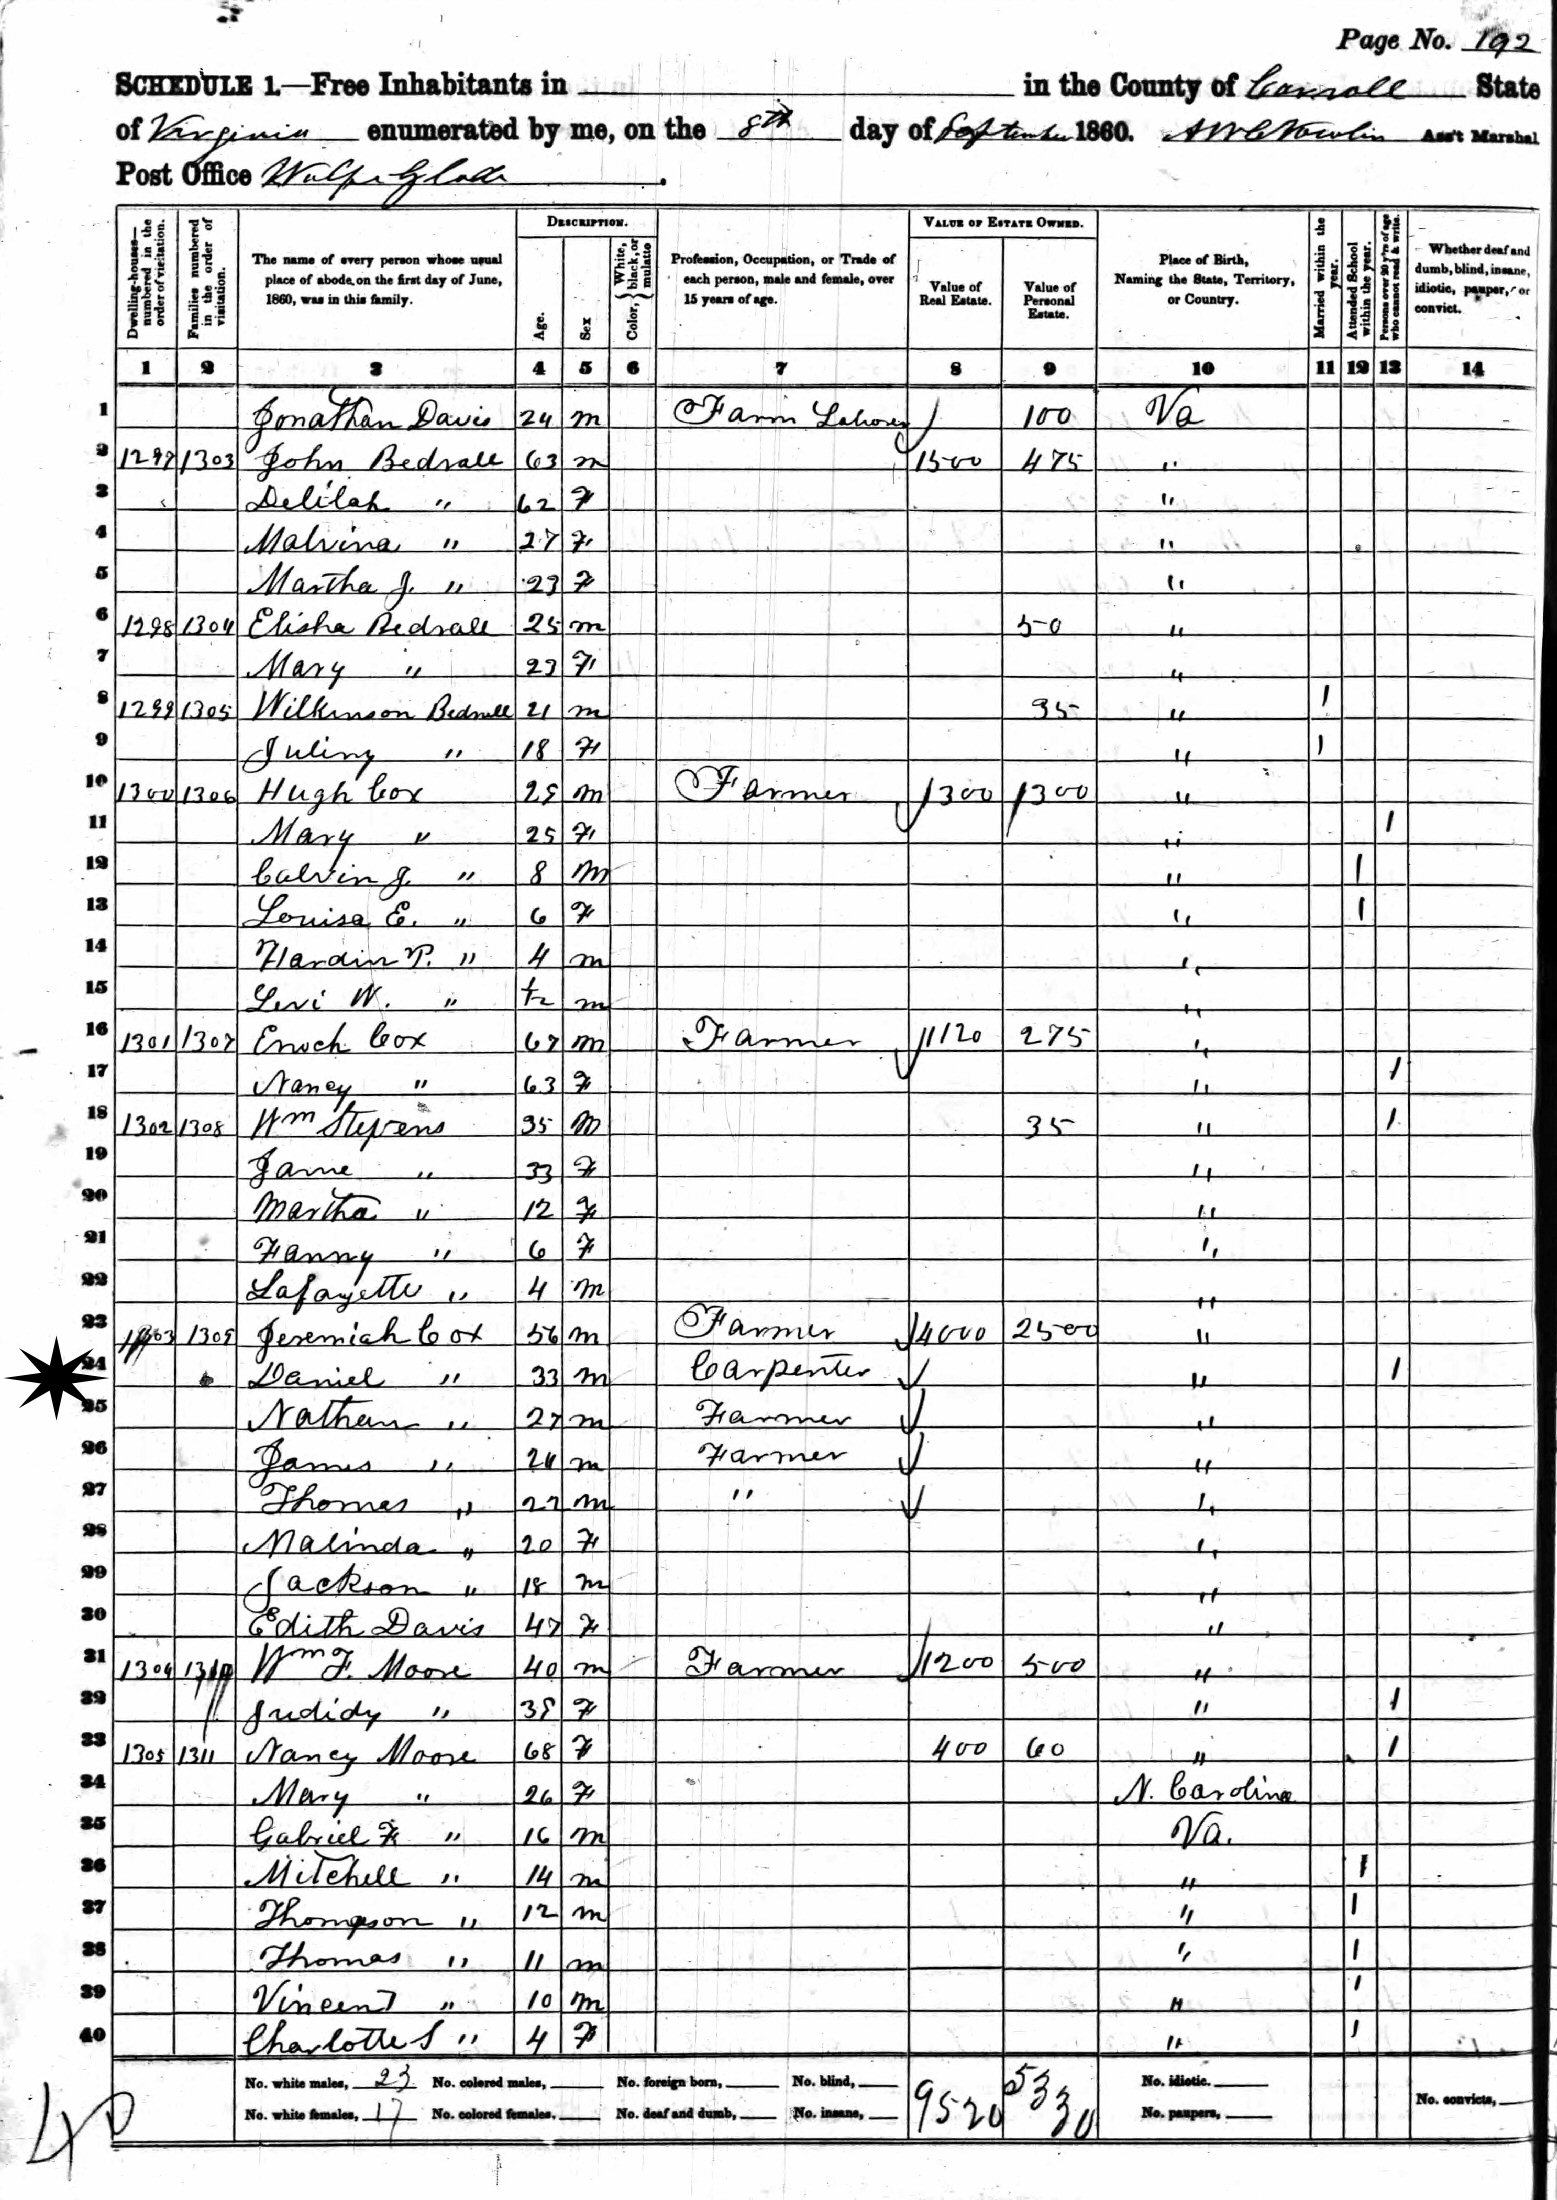 Page No. 192
SCHEDULE 1.—Free Inhabitants in in the County of Carroll State
of Virginia enumerated by me, on the 8th day of September 1860. Ass't Marshal
Post Office
Dwelling-houses—numbered in the order of visitation.
Families numbered in the order of visitation.
The name of every person whose usual place of abode on the first day of June, 1860, was in this family.
DESCRIPTION.
Age.
Sex
Color, { White, black, or mulatto
Profession, Occupation, or Trade of each person, male and female, over 15 years of age.
VALUE OF ESTATE OWNED.
Value of Real Estate.
Value of Personal Estate.
Place of Birth, Naming the State, Territory, or Country.
Married within the year.
Attended School within the year.
Persons over 20 y'rs of age who cannot read & write.
Whether deaf and dumb, blind, insane, idiotic, pauper, or convict.
1 2 3 4 5 6 7 8 9 10 11 12 13 14
1 Jonathan Davis 24 m Farm Laborer 100 Va
2 1297 1303 John Bedsall 63 m 1500 475 "
3 Delilah " 62 F "
4 Malvina " 27 F "
5 Martha J. " 23 F "
6 1298 1304 Elisha Bedsall 25 m 50 "
7 Mary " 23 F "
8 1299 1305 Wilkinson Bedsall 21 m 35 " 1
9 Juliny " 18 F " 1
10 1300 1306 Hugh Cox 29 m Farmer 1300 1300 "
11 Mary " 25 F " 1
12 Calvin J. " 8 m " 1
13 Louisa E. " 6 F " 1
14 Hardin P. " 4 m "
15 Levi W. " 1/12 m "
16 1301 1307 Enoch Cox 67 m Farmer 1120 275 "
17 Nancy " 63 F " 1
18 1302 1308 Wm Stepens 35 m 35 " 1
19 Jame " 33 F "
20 Martha " 12 F "
21 Fanny " 6 F "
22 Lafayette " 4 m "
23 1303 1309 Jeremiah Cox 56 m Farmer 4000 2500 "
24 Daniel " 33 m Carpenter " 1
25 Nathan " 27 m Farmer "
26 James " 24 m Farmer "
27 Thomas " 22 m " "
28 Malinda " 20 F "
29 Jackson " 18 m "
30 Edith Davis 47 F "
31 1304 1310 Wm F. Moore 40 m Farmer 1200 500 "
32 Judidy " 39 F " 1
33 1305 1311 Nancy Moore 68 F 400 60 " 1
34 Mary " 26 F N. Carolina
35 Gabriel F " 16 m Va.
36 Mitchell " 14 m " 1
37 Thompson " 12 m " 1
38 Thomas " 11 m " 1
39 Vincent " 10 m " 1
40 Charlotte S " 4 F " 1
No. white males, 23 No. colored males, No. foreign born, No. blind, 9520 5330 No. idiotic.
No. white females, 17 No. colored females, No. deaf and dumb, No. insane, No. paupers, No. convicts,
40